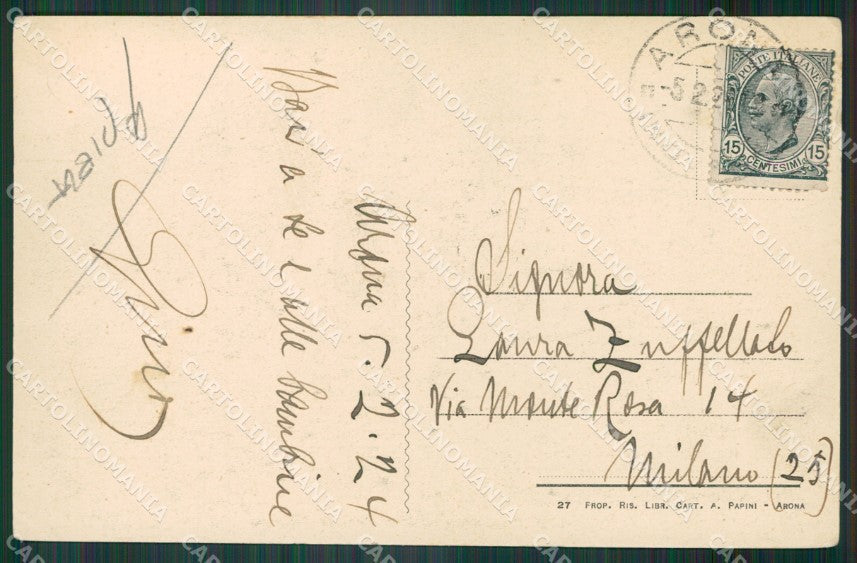 ARONA
-5.2.2
POSTE ITALIANE
15 15
CENTESIMI
Arona 5.2.24
Baci a te e alle bambine
Signora
Laura Zuffellato
Via Monte Rosa 14
Milano (25)
27 PROP. RIS. LIBR. CART. A. PAPINI - ARONA
CARTOLINOMANIA